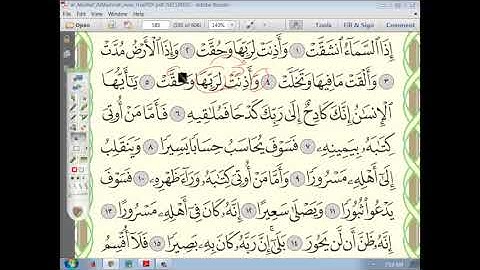 (SECURED) - Adobe Reader
Open 143% Tools Fill & Sign Comment
إِذَا ٱلسَّمَآءُ ٱنشَقَّتْ ١ وَأَذِنَتْ لِرَبِّهَا وَحُقَّتْ ٢ وَإِذَا ٱلْأَرْضُ مُدَّتْ
٣ وَأَلْقَتْ مَا فِيهَا وَتَخَلَّتْ ٤ وَأَذِنَتْ لِرَبِّهَا وَحُقَّتْ ٥ يَٰٓأَيُّهَا
ٱلْإِنسَٰنُ إِنَّكَ كَادِحٌ إِلَىٰ رَبِّكَ كَدْحًا فَمُلَٰقِيهِ ٦ فَأَمَّا مَنْ أُوتِىَ
كِتَٰبَهُۥ بِيَمِينِهِۦ ٧ فَسَوْفَ يُحَاسَبُ حِسَابًا يَسِيرًا ٨ وَيَنقَلِبُ
إِلَىٰٓ أَهْلِهِۦ مَسْرُورًا ٩ وَأَمَّا مَنْ أُوتِىَ كِتَٰبَهُۥ وَرَآءَ ظَهْرِهِۦ ١٠ فَسَوْفَ
يَدْعُوا۟ ثُبُورًا ١١ وَيَصْلَىٰ سَعِيرًا ١٢ إِنَّهُۥ كَانَ فِىٓ أَهْلِهِۦ مَسْرُورًا ١٣
إِنَّهُۥ ظَنَّ أَن لَّن يَحُورَ ١٤ بَلَىٰٓ إِنَّ رَبَّهُۥ كَانَ بِهِۦ بَصِيرًا ١٥ فَلَآ أُقْسِمُ